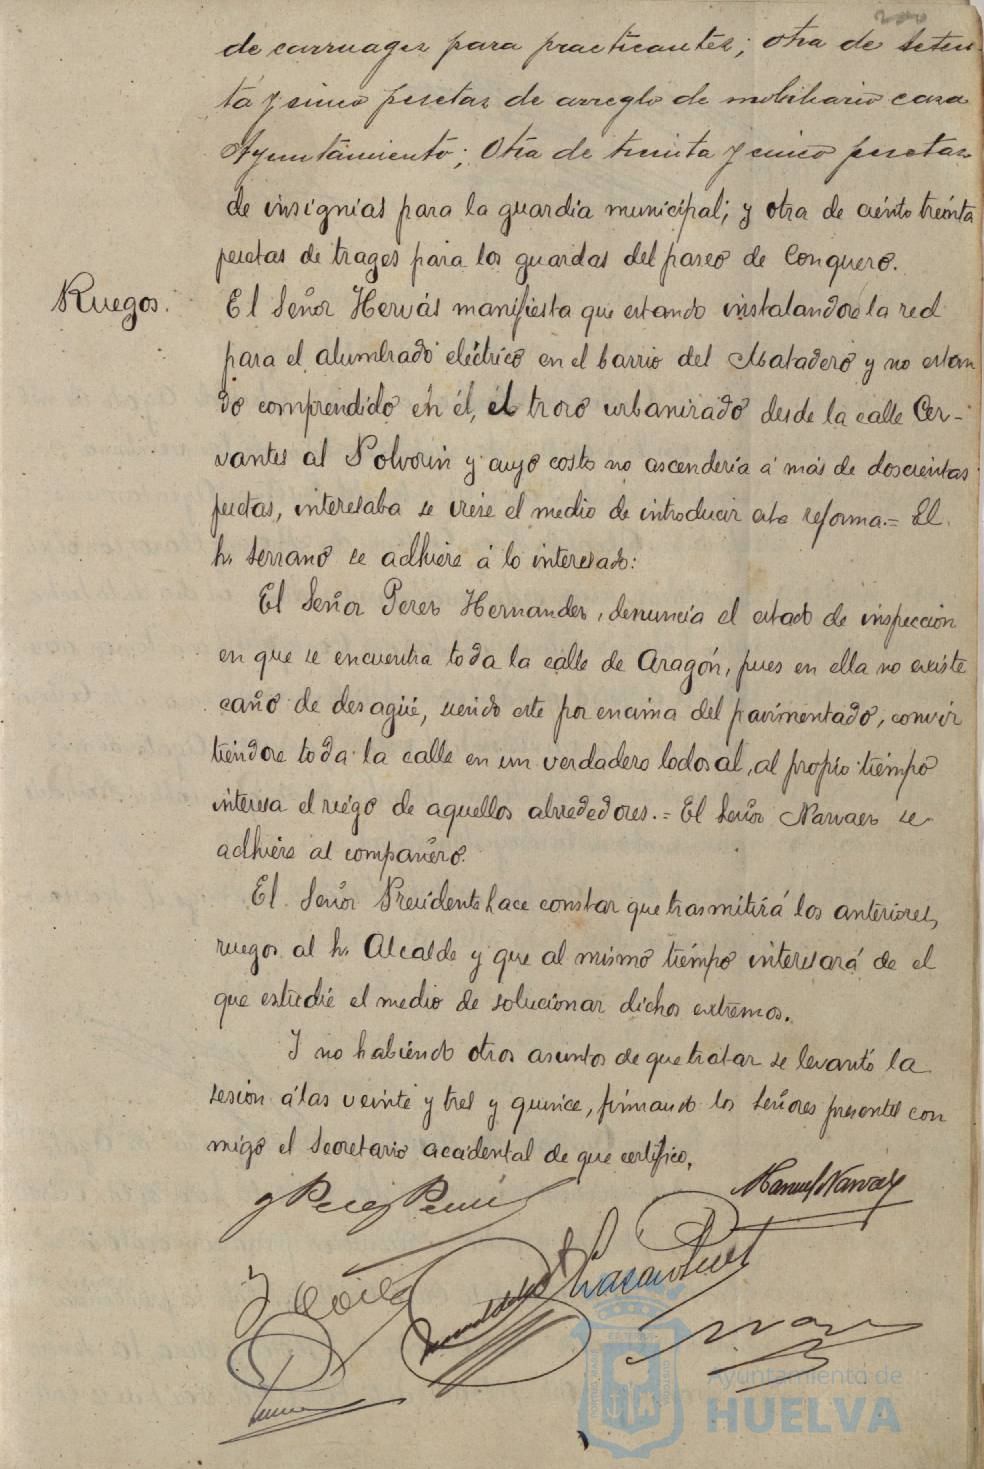 200
de carruages para practicantes; otra de seten-
ta y cinco pesetas de arreglo de mobiliario casa
Ayuntamiento; Otra de treinta y cinco pesetas
de insignias para la guardia municipal; y otra de ciento treinta
pesetas de trages para los guardas del paseo de Conquero.
Ruegos.
El Señor Hervás manifiesta que estando instalandose la red
para el alumbrado eléctrico en el barrio del Matadero y no estan
do comprendido en él, el trozo urbanizado desde la calle Cer-
vantes al Polvorín y cuyo costo no ascendería á más de doscientas
pesetas, interesaba se viese el medio de introducir esta reforma.= El
Sr. Serrano se adhiere á lo interesado:
El Señor Perez Hernandez, denuncia el estado de inspección
en que se encuentra toda la calle de Aragón, pues en ella no existe
caño de desagüe, siendo este por encima del pavimentado, convir
tiendose toda la calle en un verdadero lodosal, al propio tiempo
interesa el riego de aquellos alrededores.= El Señor Narvaez se
adhiere al compañero.
El Señor Presidente hace constar que trasmitirá los anteriores
ruegos al Sr. Alcalde y que al mismo tiempo interesará de el
que estudie el medio de solucionar dichos extremos.
Y no habiendo otros asuntos de que tratar se levantó la
sesión á las veinte y tres y quince, firmando los señores presentes con
migo el Secretario accidental de que certifico.
Manuel Narvaez
Ayuntamiento de
HUELVA